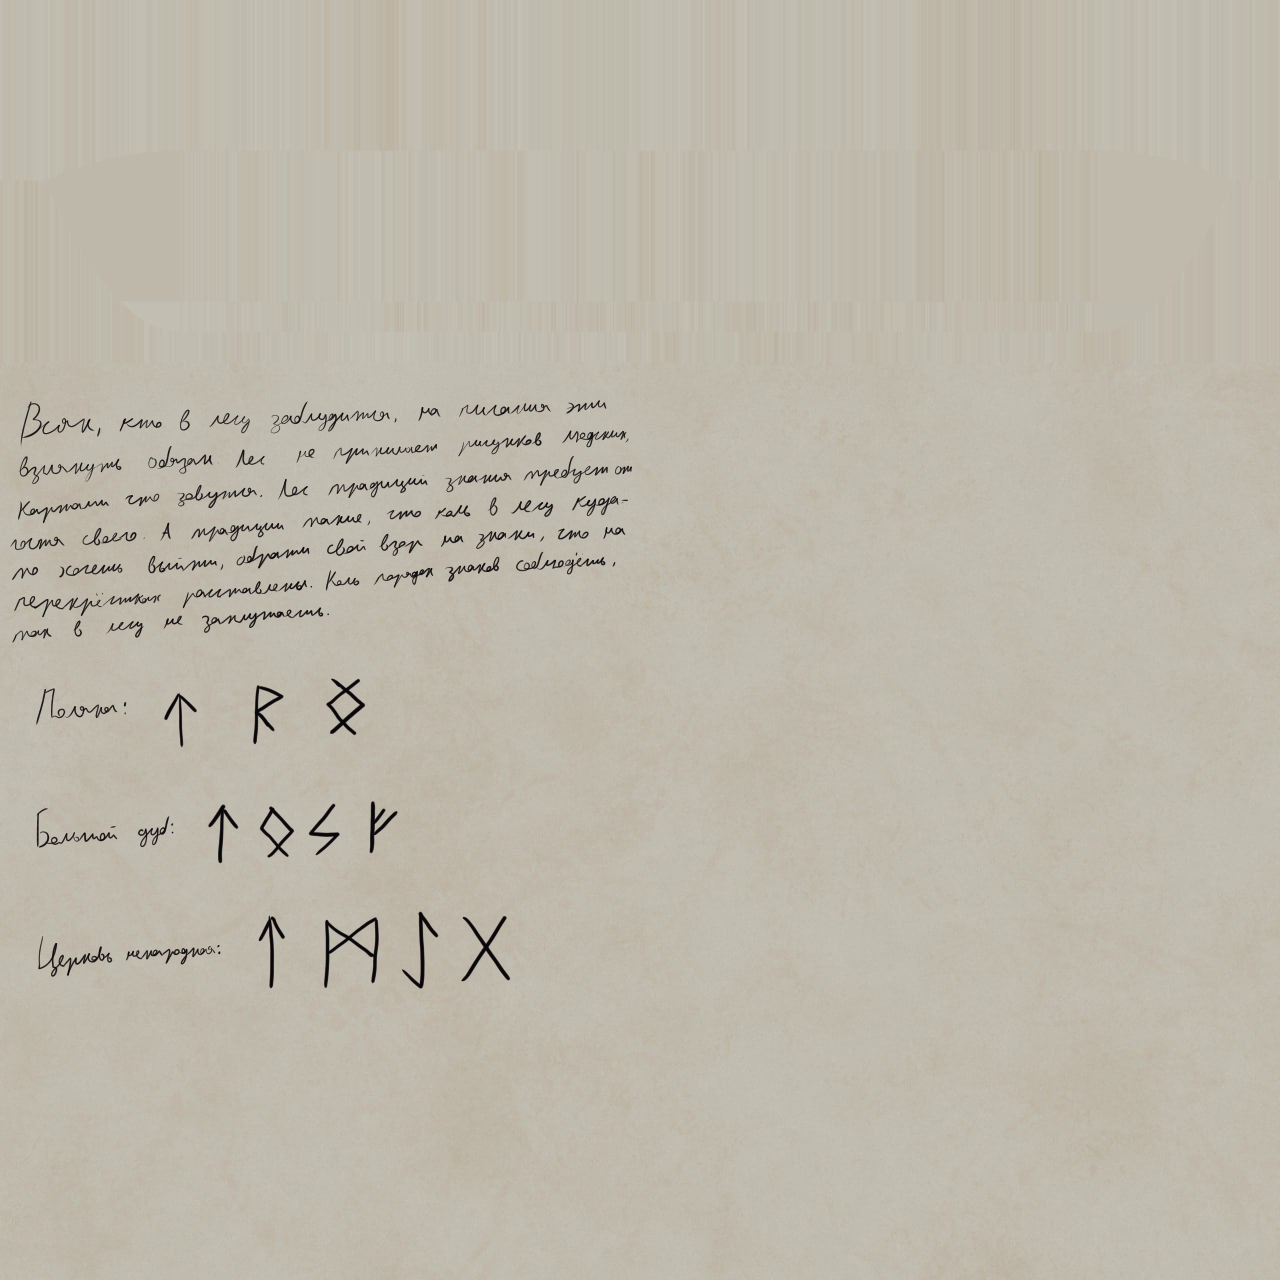 Всяк, кто в лесу заблудится, на писания эти
взглянуть обязан. Лес не принимает рисунков людских,
Картами что зовутся. Лес традиций знания требует от
гостя своего. А традиции такие, что коль в лесу куда-
то хочешь выйти, обрати свой взор на знаки, что на
перекрёстках расставлены. Коль порядок знаков соблюдёшь,
так в лесу не заплутаешь.
Поляна: ᛏ ᚱ ᛝ
Большой дуб: ᛏ ᛟ ᛊ ᚠ
Церковь ненародная: ᛏ ᛗ ᛇ ᚷ